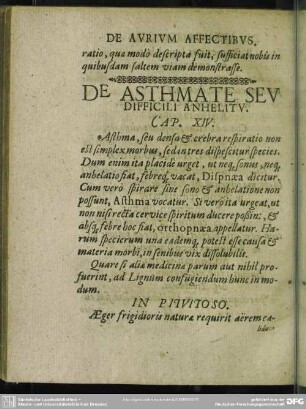 DE AVRIVM AFFECTIBVS,
ratio, quæ modò descripta fuit, sufficiat nobis in
quibusdam saltem viam demonstrasse.
DE ASTHMATE SEV
DIFFICILI ANHELITV.
CAP. XIV.
Asthma, seu densa & crebra respiratio non
est simplex morbus, sed in tres dispescitur species.
Dum enim ita placidè urget, ut neq, sonus, neq,
anhelatio fiat, febreq, vacat, Dispnæa dicitur.
Cum verò spirare sine sono & anhelatione non
possunt, Asthma vocatur. Si verò ita urgeat, ut
non nisi recta cervice spiritum ducere possin; &
absq, febre hoc fiat, orthopnæa appellatur. Ha-
rum specierum una eademq, potest esse causa &
materia morbi, in senibus vix dissolubilis.
Quare si alia medicina parum aut nihil pro-
fuerint, ad Lignum confugiendum hunc in mo-
dum.
IN PITVITOSO.
Æger frigidioris naturæ requirit aërem ca-